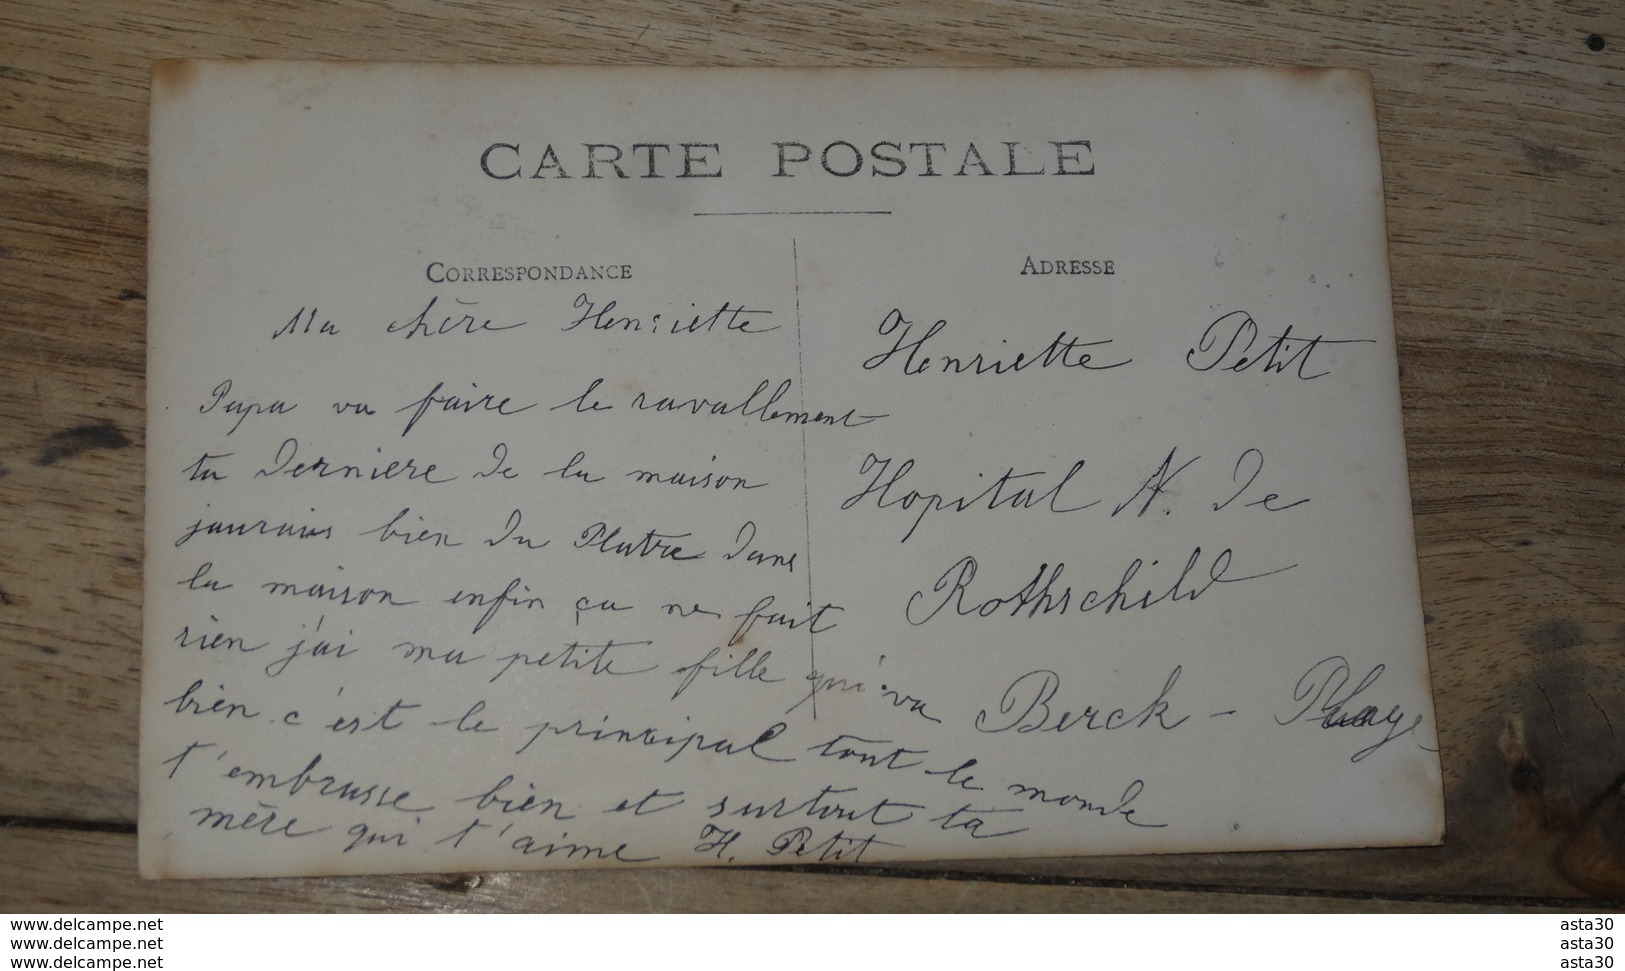 CARTE POSTALE
CORRESPONDANCE
Ma chère Henriette
Papa va faire le ravallement
ta derniere de la maison
jaurais bien du Platre dans
la maison enfin ça ne fait
rien j'ai ma petite fille qui va
bien c'est le principal tout le monde
t'embrasse bien et surtout ta
mère qui t'aime H. Petit
ADRESSE
Henriette Petit
Hopital N. de
Rothschild
Berck - Plage
www.delcampe.net asta30
www.delcampe.net asta30
www.delcampe.net asta30